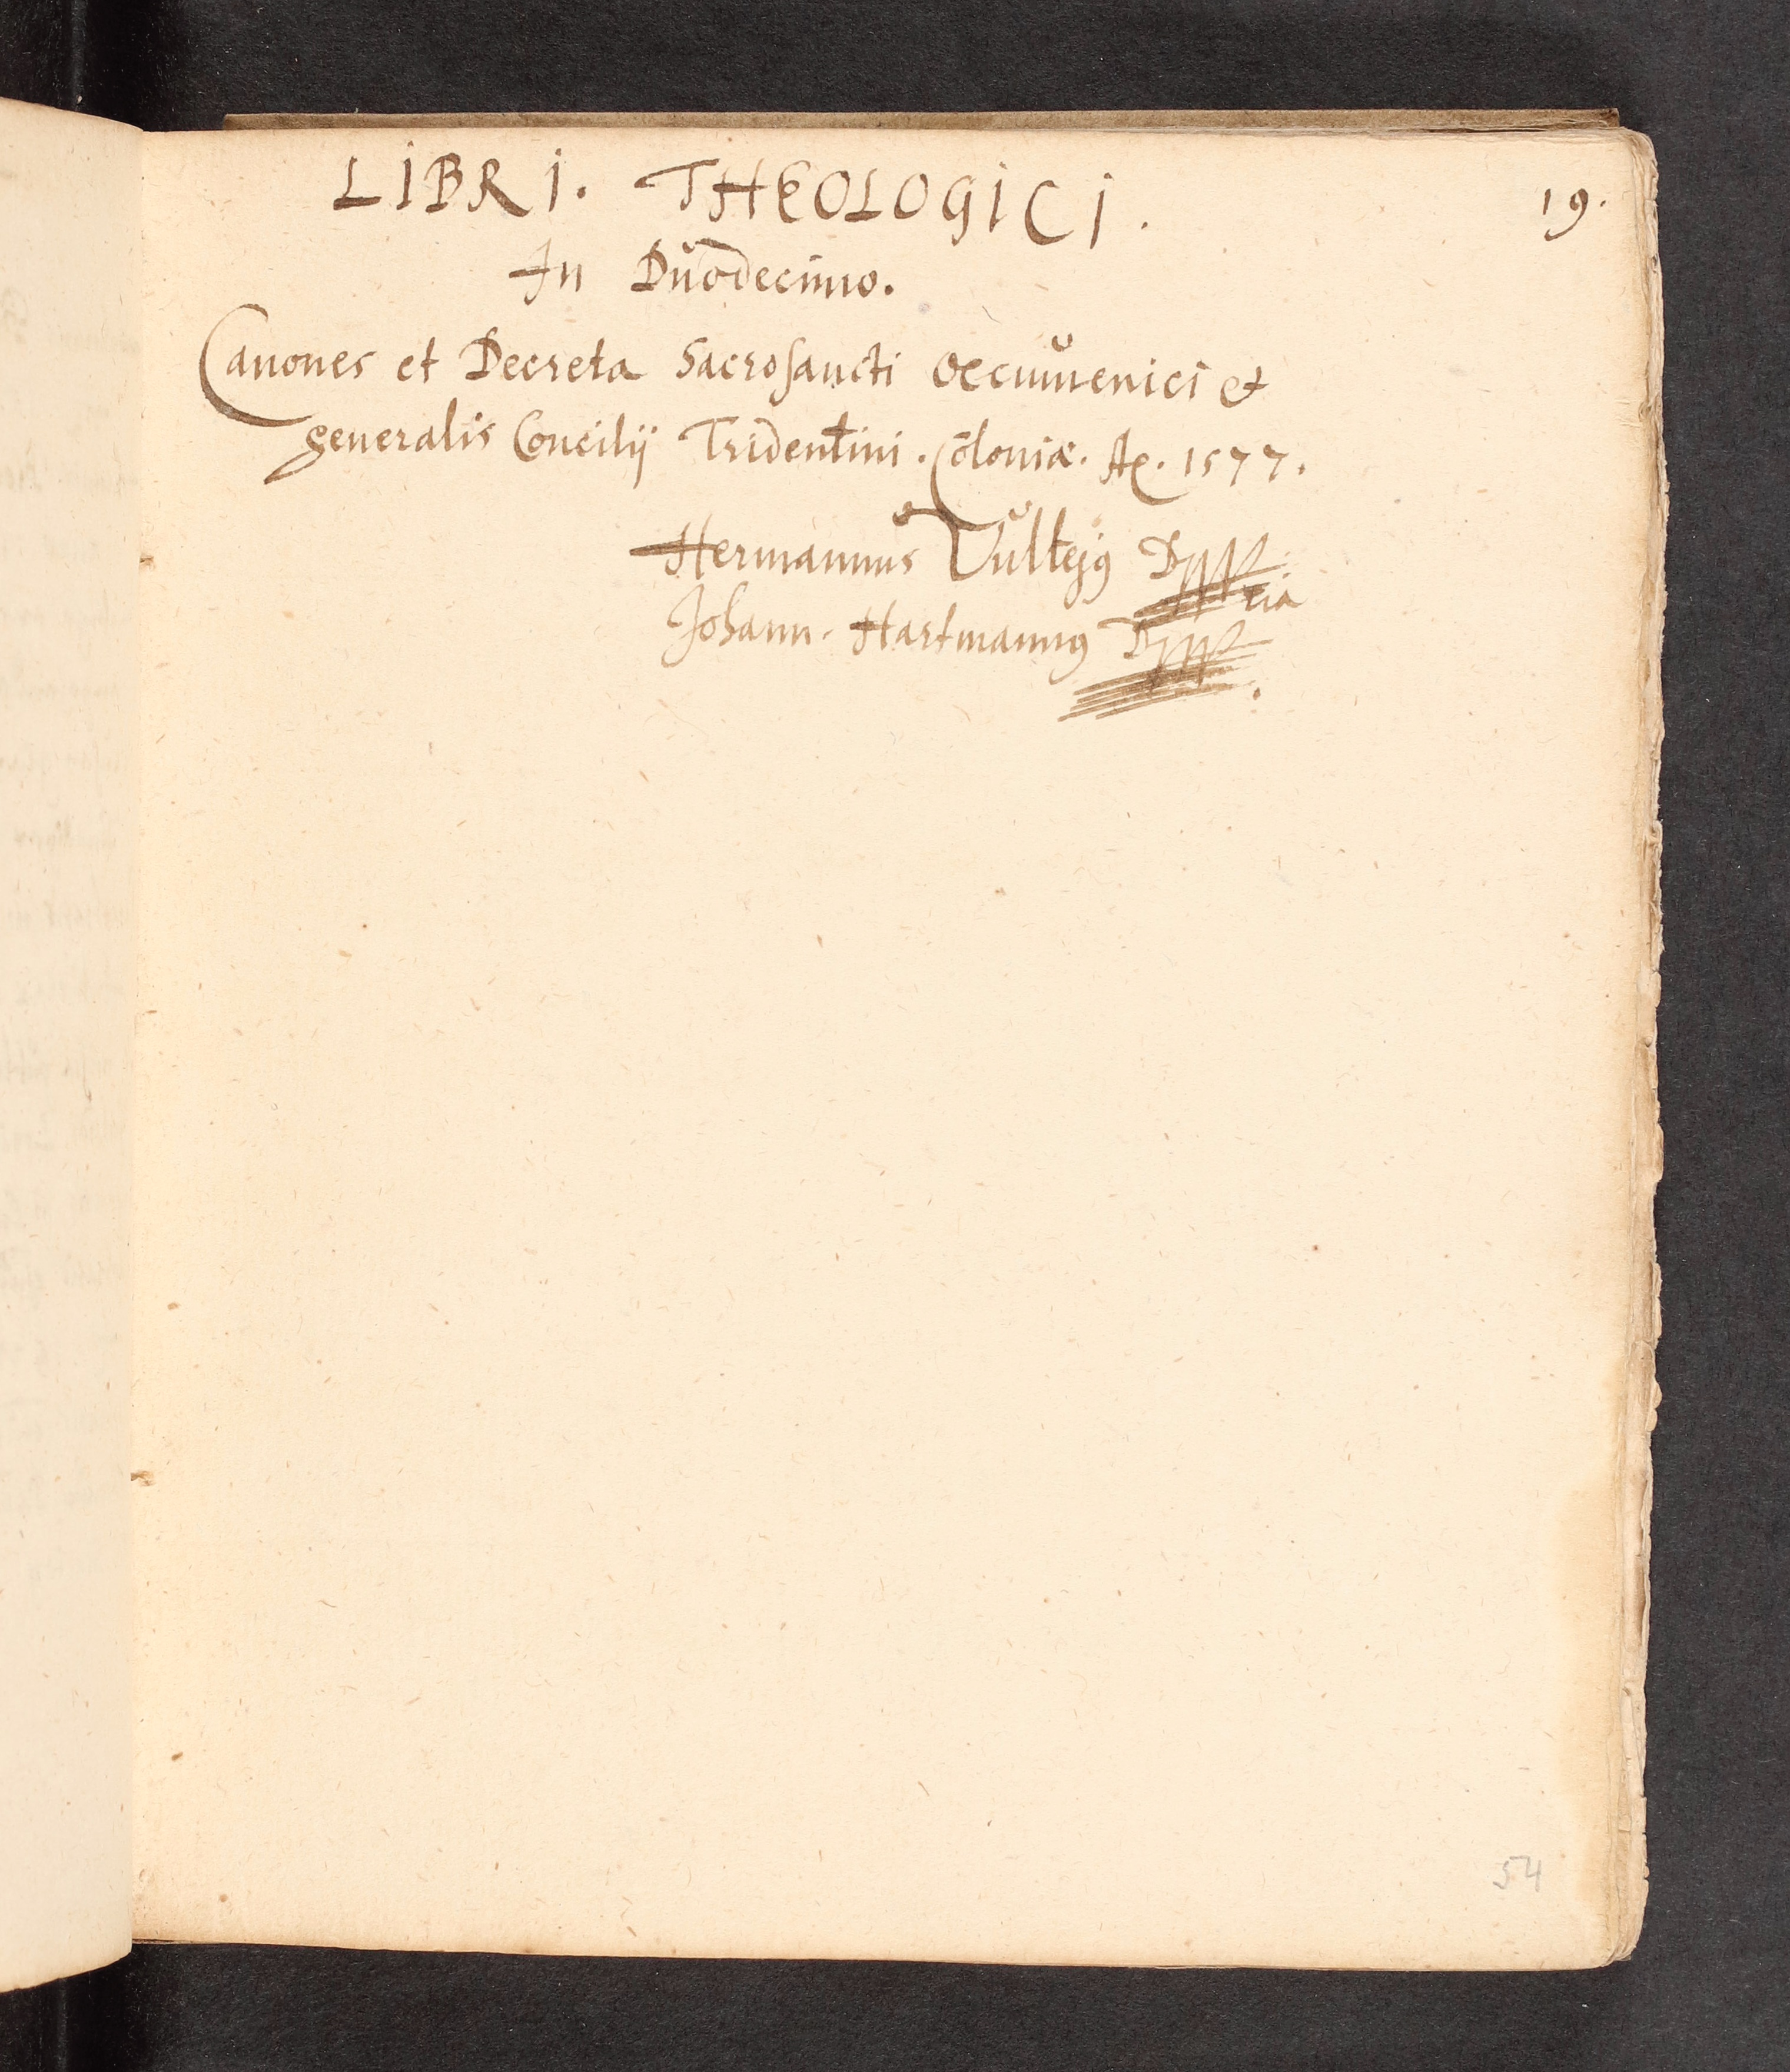 LIBRI. THEOLOGICI. 19.
In Duodecimo.
Canones et Decreta Sacrosancti Oecumenici et
generalis Concilij Tridentini. Coloniæ. Aº. 1577.
Hermannus Vultejus D
Johann. Hartmannus D
54